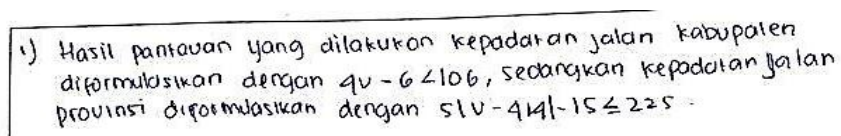 1) Hasil pantauan yang dilakukan kepadatan jalan kabupaten
diformulasikan dengan 4v - 6 < 106, sedangkan kepadatan jalan
provinsi diformulasikan dengan 5|v - 4|4|-15 ≤ 225.